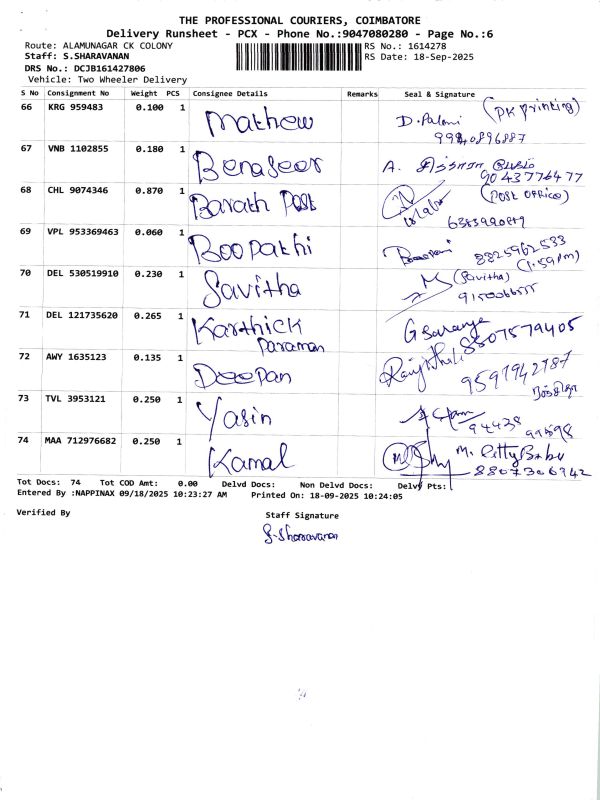 THE PROFESSIONAL COURIERS, COIMBATORE
Delivery Runsheet - PCX - Phone No.:9047080280 - Page No.:6
Route: ALAMUNAGAR CK COLONY
RS No.: 1614278
Staff: S.SHARAVANAN
RS Date: 18-Sep-2025
DRS No.: DCJB161427806
Vehicle: Two Wheeler Delivery
S No Consignment No Weight PCS Consignee Details Remarks Seal & Signature
66 KRG 959483 0.100 1 Mathew D. Palani (PK Printing)
99840896887
67 VNB 1102855 0.180 1 Benaseer A.
90 43776477
68 CHL 9074346 0.870 1 Barath Post (POST OFFICE)
69 VPL 953369463 0.060 1 Boopathi 8825962533
(1.59pm)
70 DEL 530519910 0.230 1 Savitha (Savitha)
71 DEL 121735620 0.265 1 Karthick Paraman G Saranya 8807579405
72 AWY 1635123 0.135 1 Deepan 9597942787
73 TVL 3953121 0.250 1 Yasin 94438 99898
74 MAA 712976682 0.250 1 Kamal M. Chitty Babu
8807306942
Tot Docs: 74 Tot COD Amt: 0.00 Delvd Docs: Non Delvd Docs: Delvy Pts:
Entered By :NAPPINAX 09/18/2025 10:23:27 AM Printed On: 18-09-2025 10:24:05
Verified By Staff Signature
S. Sharavanan